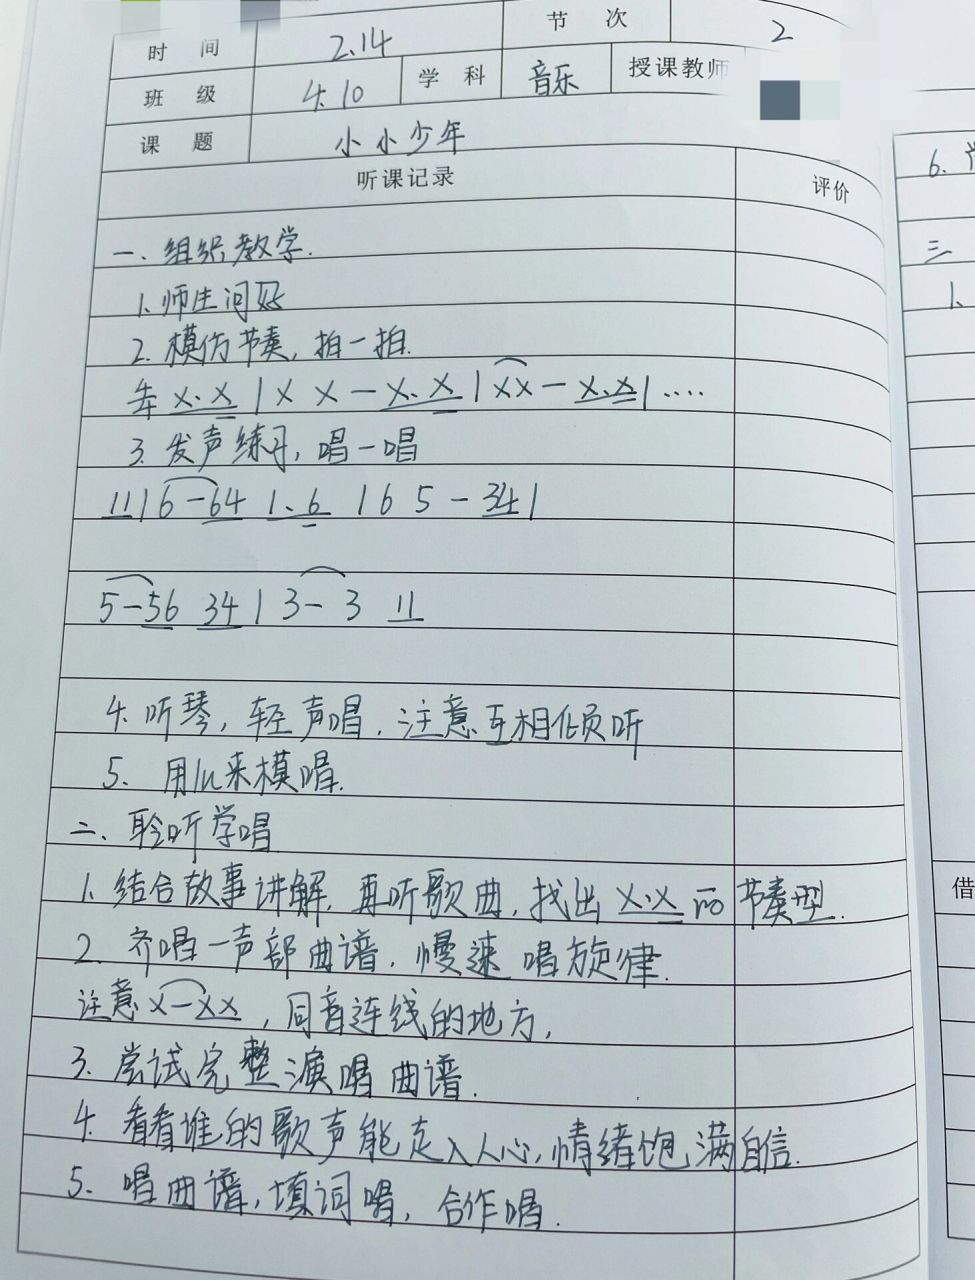 时间 2.14 节次 2
班级 4.10 学科 音乐 授课教师
课题 小小少年
听课记录 评价
一、组织教学.
1.师生问好
2.模仿节奏,拍一拍.
X.X | X X — X.X | XX — X.X | ····
3.发声练习,唱一唱
11 | 6 — 64 1.6 | 6 5 — 34 |
5 — 56 34 | 3 — 3 11
4.听琴,轻声唱,注意互相倾听
5.用lu来模唱.
二、聆听学唱
1.结合故事讲解,再听歌曲,找出X.X的节奏型.
2.齐唱一声部曲谱,慢速唱旋律.
注意X—XX,同音连线的地方,
3.尝试完整演唱曲谱.
4.看看谁的歌声能走入人心,情绪饱满自信.
5.唱曲谱,填词唱,合作唱.
6.
三
1.
借